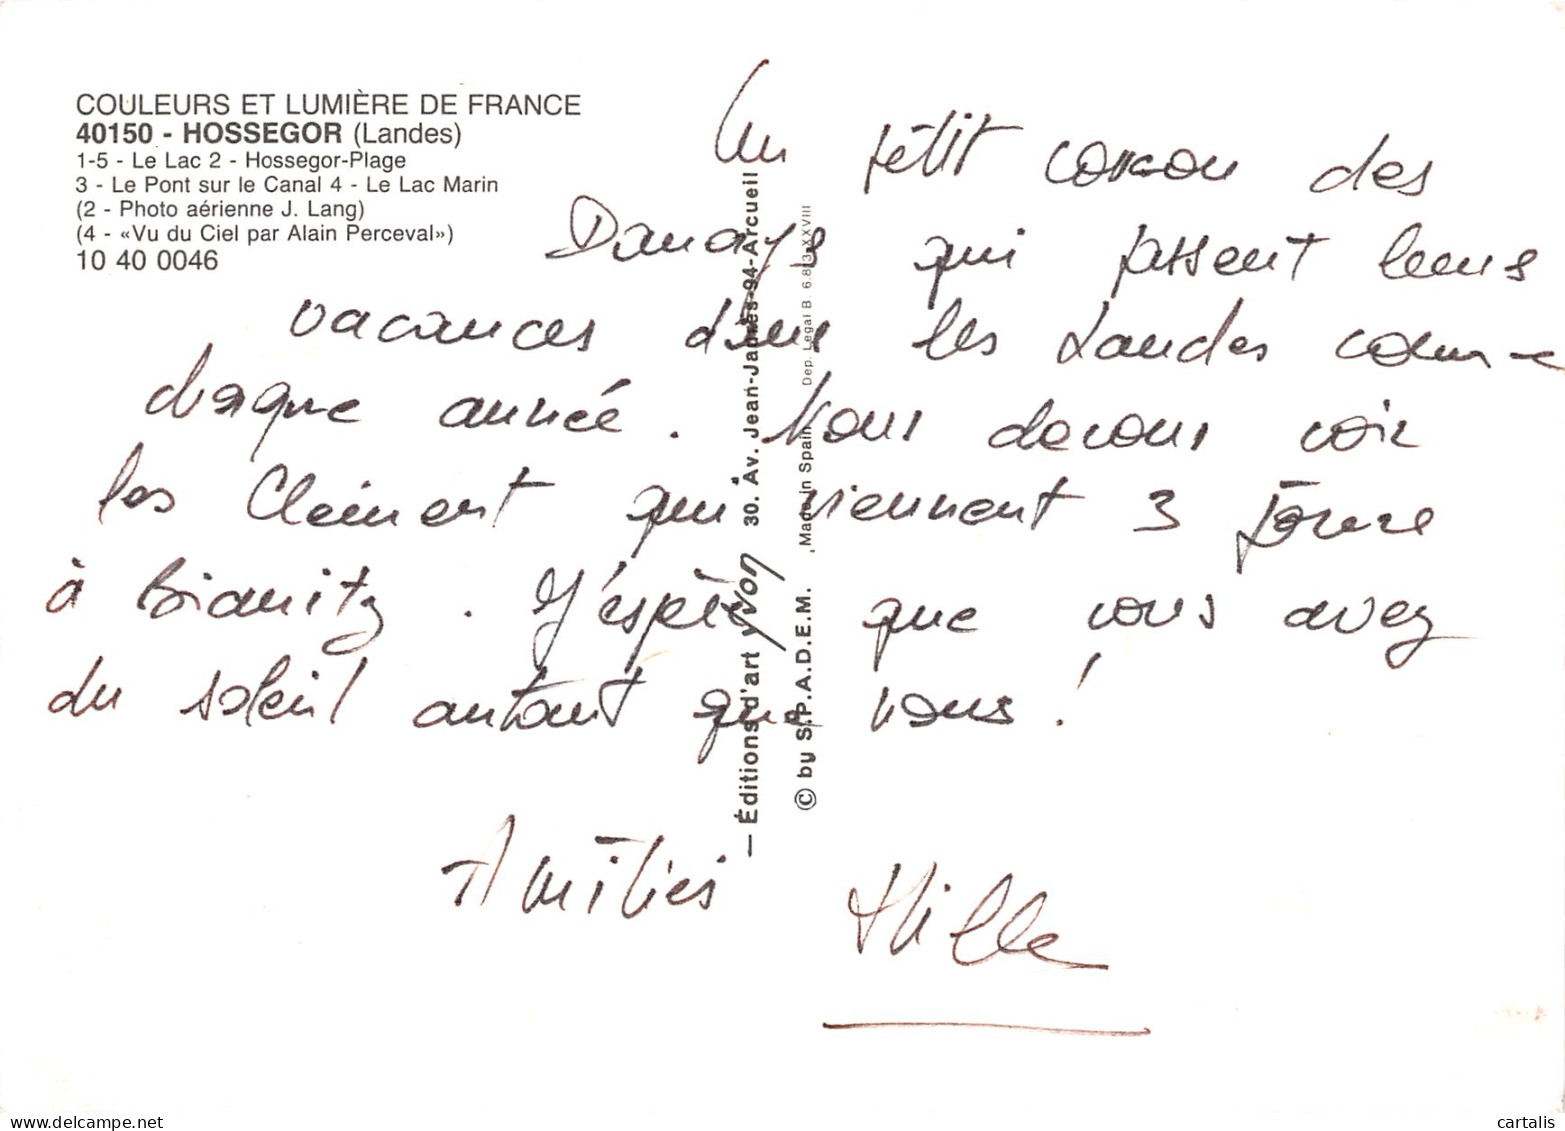 COULEURS ET LUMIÈRE DE FRANCE
40150 - HOSSEGOR (Landes)
1-5 - Le Lac 2 - Hossegor-Plage
3 - Le Pont sur le Canal 4 - Le Lac Marin
(2 - Photo aérienne J. Lang)
(4 - «Vu du Ciel par Alain Perceval»)
10 40 0046
Un petit coucou des
Danays qui passent leurs
vacances dans les Landes comme
chaque année. Nous devons voir
les Clément qui viennent 3 jours
à Biarritz. J'espère que vous avez
du soleil autant que nous !
Amitiés
— Éditions d'art yvon 30. Av. Jean-Jaurès-94-Arcueil
© by S.P.A.D.E.M. Made in Spain Dep. Legal B 6.883-XXVIII
cartalis
delcampe.net